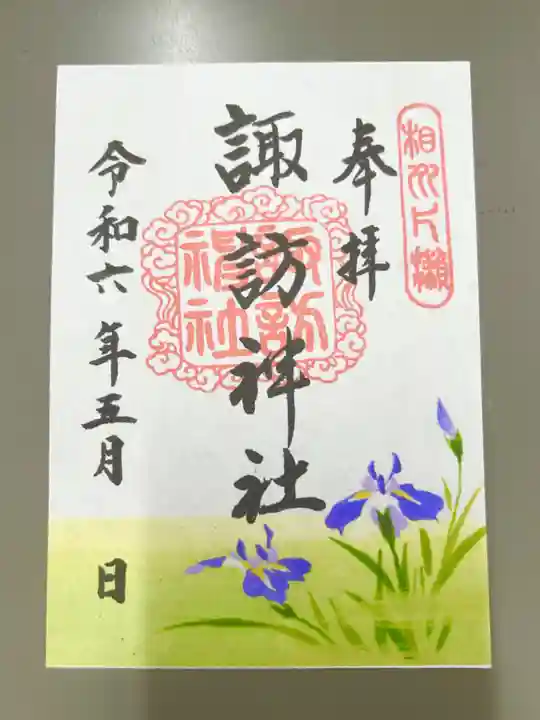 相州片瀬
奉拝
諏訪神社
諏訪神社
令和六年五月 日